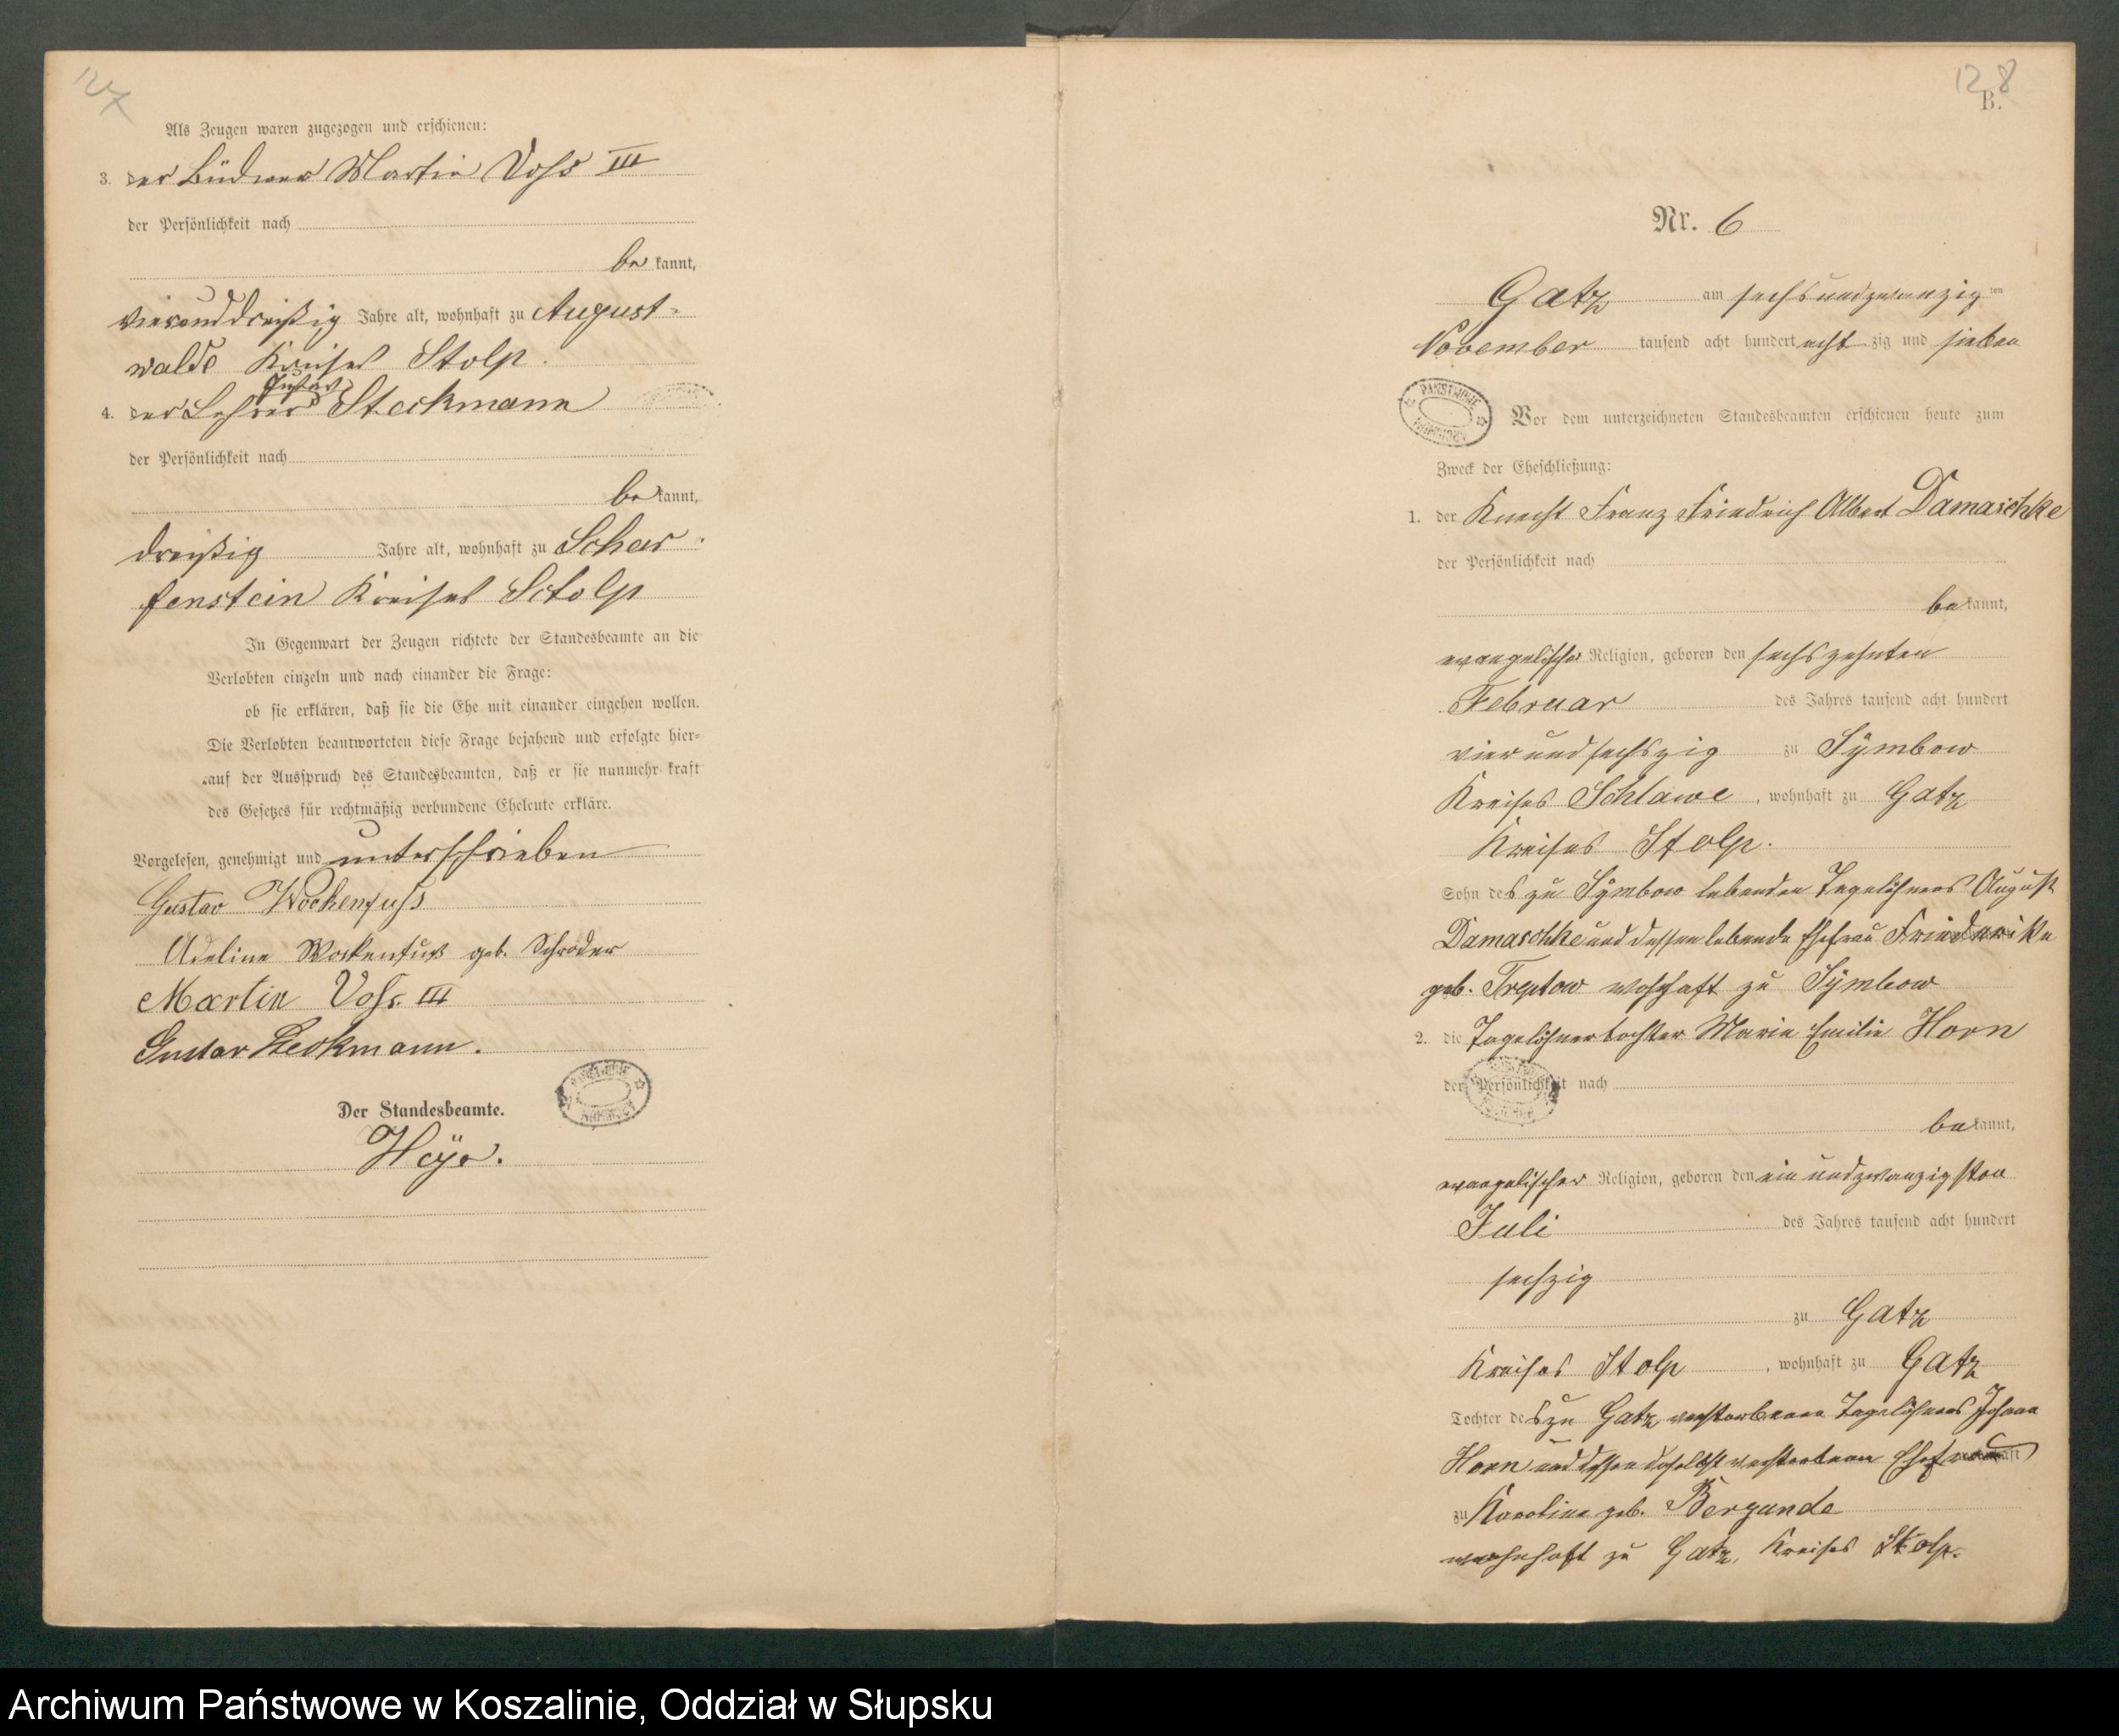 127
Als Zeugen waren zugezogen und erschienen:
3. der Büdner Martin Voss III
der Persönlichkeit nach
be kannt,
vierunddreißig Jahre alt, wohnhaft zu August-
walde Kreises Stolp.
Gustav
4. der Lehrer Steckmann
der Persönlichkeit nach
be kannt,
dreißig Jahre alt, wohnhaft zu Schar-
fenstein Kreises Stolp
In Gegenwart der Zeugen richtete der Standesbeamte an die
Verlobten einzeln und nach einander die Frage:
ob sie erklären, daß sie die Ehe mit einander eingehen wollen.
Die Verlobten beantworteten diese Frage bejahend und erfolgte hier-
auf der Ausspruch des Standesbeamten, daß er sie nunmehr kraft
des Gesetzes für rechtmäßig verbundene Eheleute erkläre.
Vorgelesen, genehmigt und unterschrieben
Gustav Wockenfuss
Adeline Wockenfuss geb. Schröder
Martin Voss III
Gustav Steckmann.
Der Standesbeamte.
Heye.
128
B.
Nr. 6
Gatz am sechsundzwanzig ten
November tausend acht hundert acht zig und sieben
Vor dem unterzeichneten Standesbeamten erschienen heute zum
Zweck der Eheschließung:
1. der Knecht Franz Friedrich Albert Damaschke
der Persönlichkeit nach
be kannt,
evangelischer Religion, geboren den sechszehnten
Februar des Jahres tausend acht hundert
vier und sechszig zu Sÿmbow
Kreises Schlawe, wohnhaft zu Gatz
Kreises Stolp.
Sohn des zu Sÿmbow lebenden Tagelöhners August
Damaschke und dessen lebende Ehefrau Friederike
geb. Treptow wohnhaft zu Sÿmbow
2. die Tagelöhnertochter Marie Emilie Horn
der Persönlichkeit nach
be kannt,
evangelischer Religion, geboren den ein und zwanzigsten
Juli des Jahres tausend acht hundert
sechzig
zu Gatz
Kreises Stolp, wohnhaft zu Gatz
Tochter des zu Gatz verstorbenen Tagelöhners Johann
Horn und dessen daselbst verstorbenen Ehefrau
zu Karoline geb. Bergunde
wohnhaft zu Gatz, Kreises Stolp.
Archiwum Państwowe w Koszalinie, Oddział w Słupsku